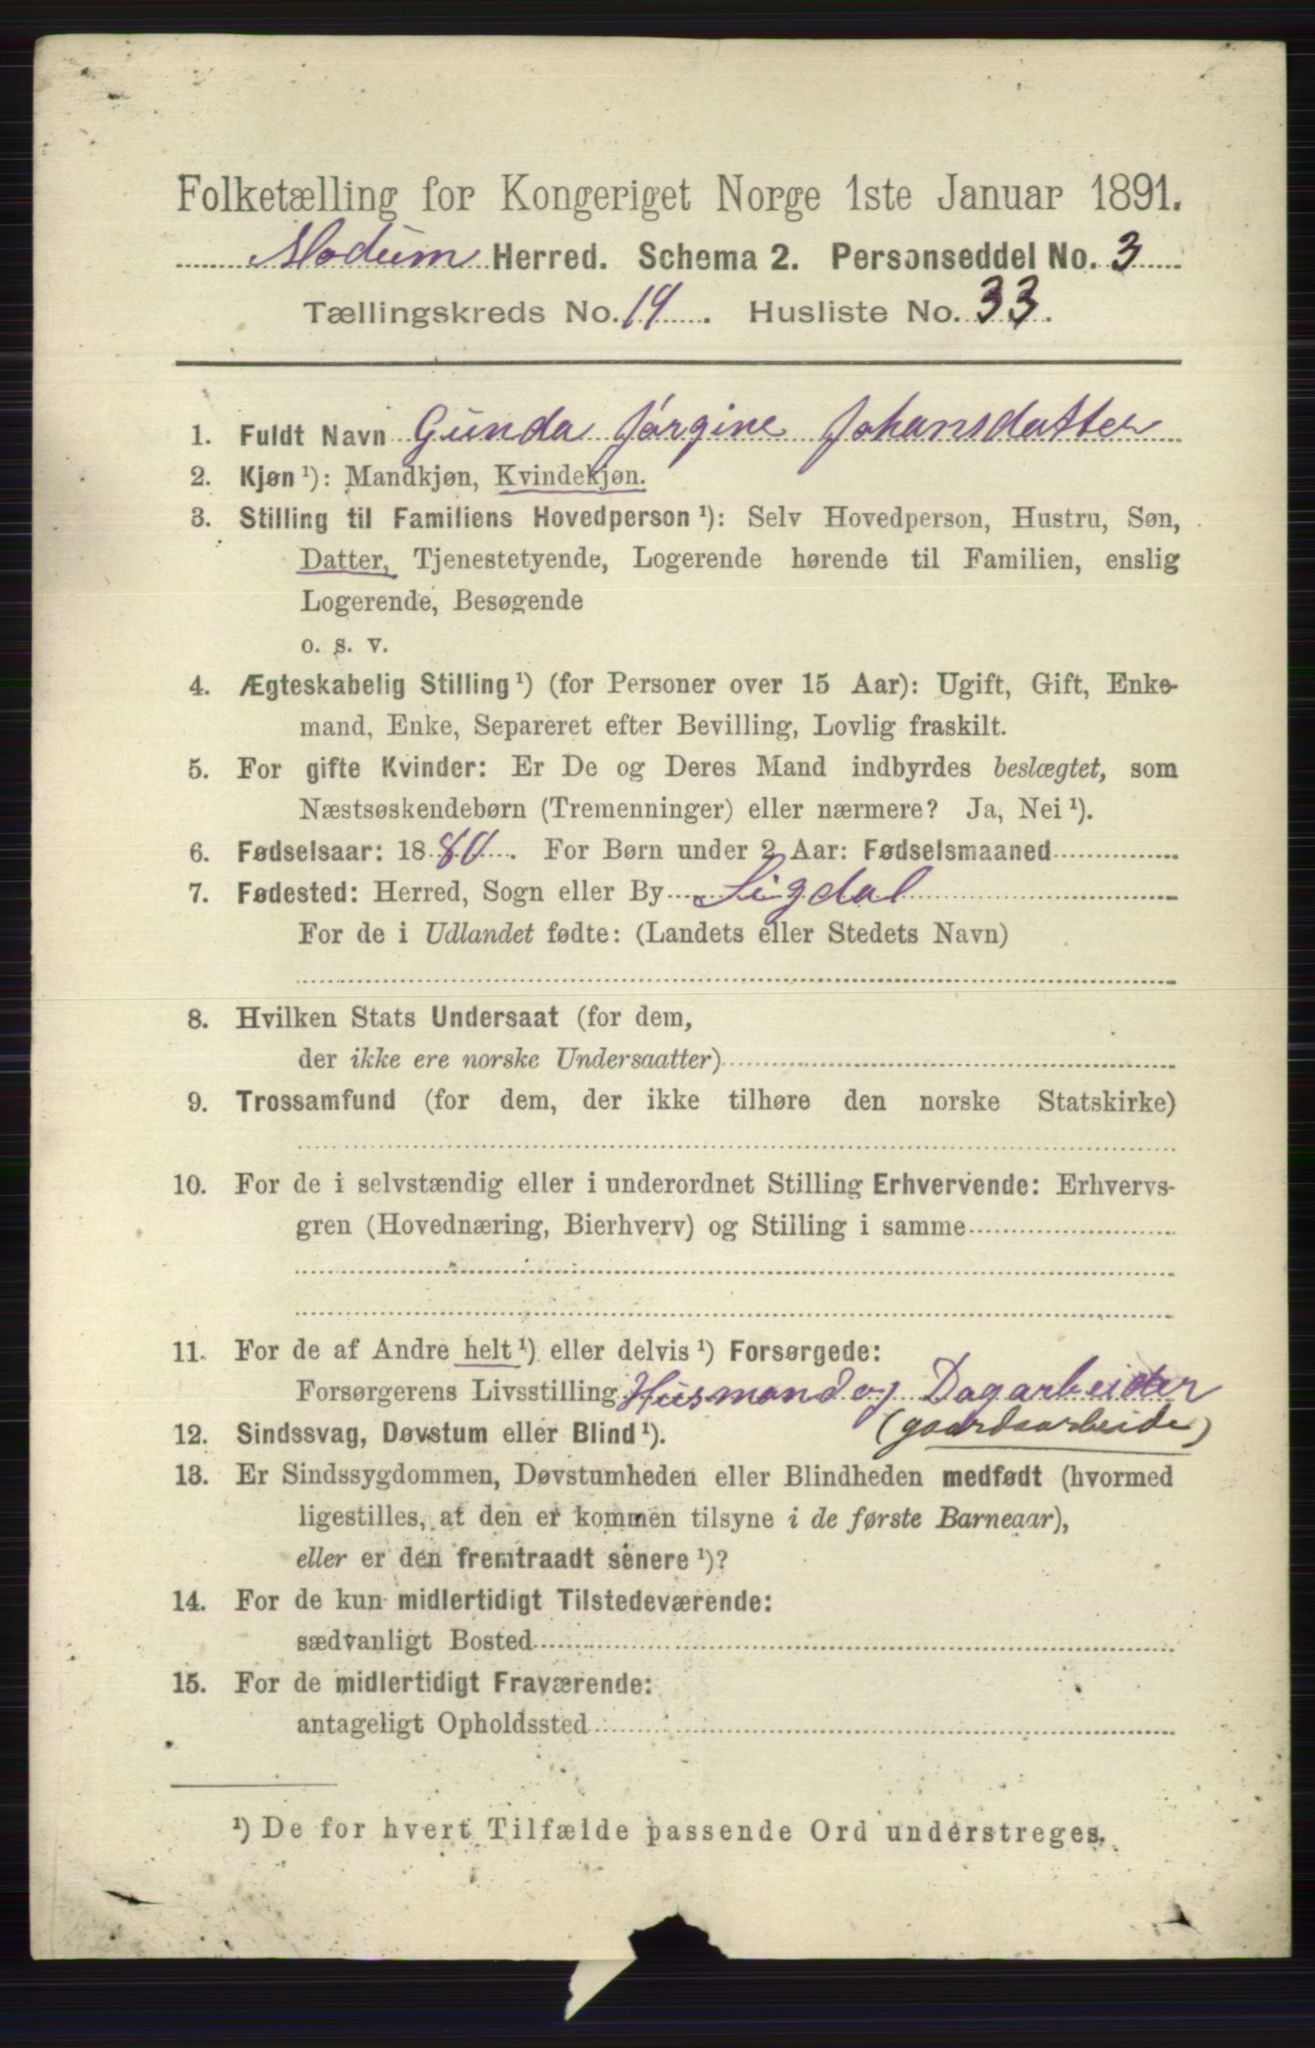 Folketælling for Kongeriget Norge 1ste Januar 1891.
Modum Herred. Schema 2. Personseddel No. 3
Tællingskreds No. 14. Husliste No. 33.
1. Fuldt Navn Gunda Jørgine Johansdatter
2. Kjøn ¹): Mandkjøn, Kvindekjøn.
3. Stilling til Familiens Hovedperson ¹): Selv Hovedperson, Hustru, Søn,
Datter, Tjenestetyende, Logerende hørende til Familien, enslig
Logerende, Besøgende
o. s. v.
4. Ægteskabelig Stilling ¹) (for Personer over 15 Aar): Ugift, Gift, Enke-
mand, Enke, Separeret efter Bevilling, Lovlig fraskilt.
5. For gifte Kvinder: Er De og Deres Mand indbyrdes beslægtet, som
Næstsøskendebørn (Tremenninger) eller nærmere? Ja, Nei ¹).
6. Fødselsaar: 1880. For Børn under 2 Aar: Fødselsmaaned
7. Fødested: Herred, Sogn eller By Sigdal
For de i Udlandet fødte: (Landets eller Stedets Navn)
8. Hvilken Stats Undersaat (for dem,
der ikke ere norske Undersaatter)
9. Trossamfund (for dem, der ikke tilhøre den norske Statskirke)
10. For de i selvstændig eller i underordnet Stilling Erhvervende: Erhvervs-
gren (Hovednæring, Bierhverv) og Stilling i samme
11. For de af Andre helt ¹) eller delvis ¹) Forsørgede:
Forsørgerens Livsstilling Husmand og Dagarbeider
(gaardsarbeide)
12. Sindssvag, Døvstum eller Blind ¹).
13. Er Sindssygdommen, Døvstumheden eller Blindheden medfødt (hvormed
ligestilles, at den er kommen tilsyne i de første Barneaar),
eller er den fremtraadt senere ¹)?
14. For de kun midlertidigt Tilstedeværende:
sædvanligt Bosted
15. For de midlertidigt Fraværende:
antageligt Opholdssted
¹) De for hvert Tilfælde passende Ord understreges.